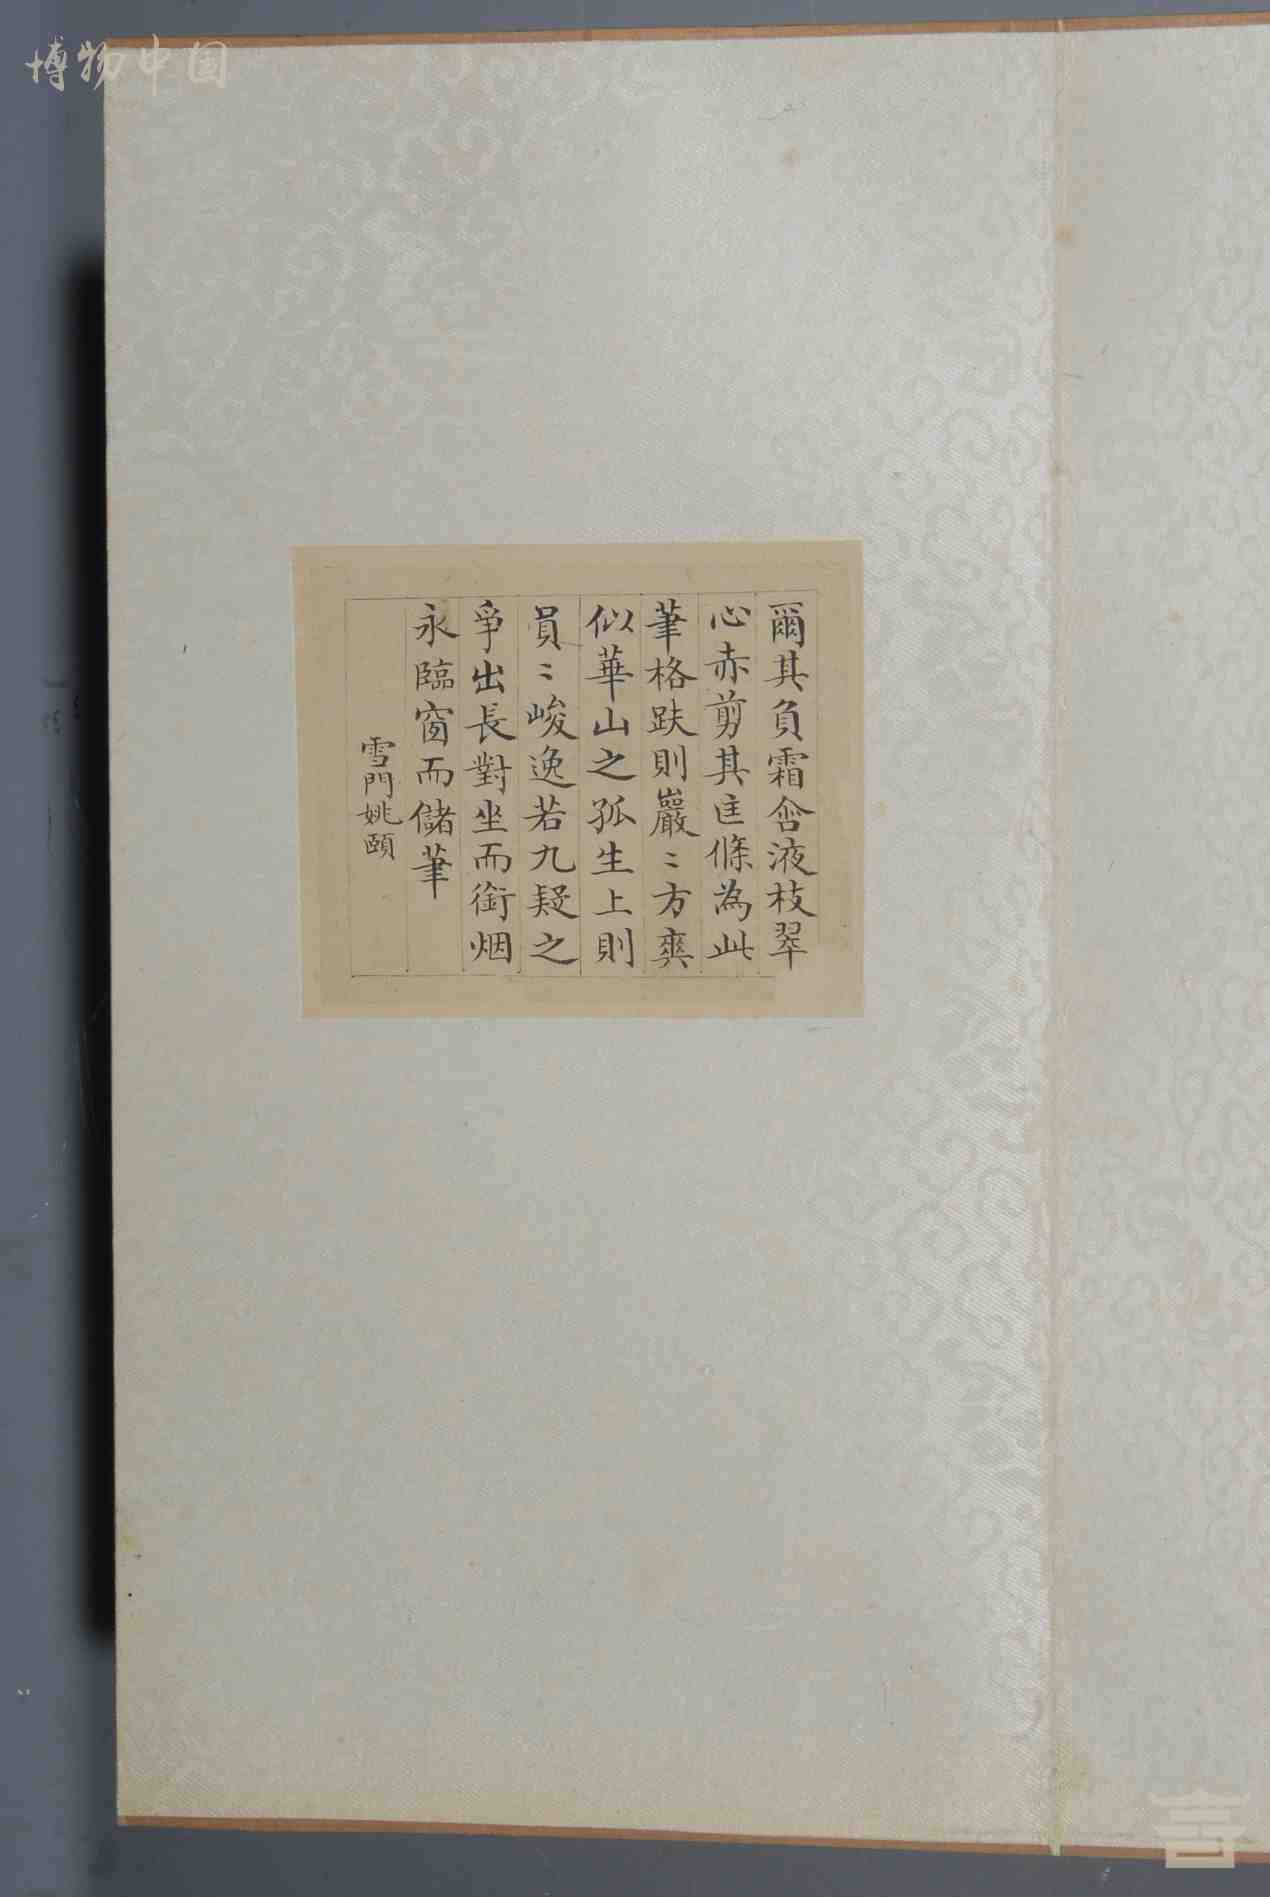 博物中国
爾其負霜含液枝翠
心赤剪其匡條為此
筆格趺則巖〻方爽
似華山之孤生上則
員〻峻逸若九疑之
爭出長對坐而銜烟
永臨窗而儲筆
雪門姚頤